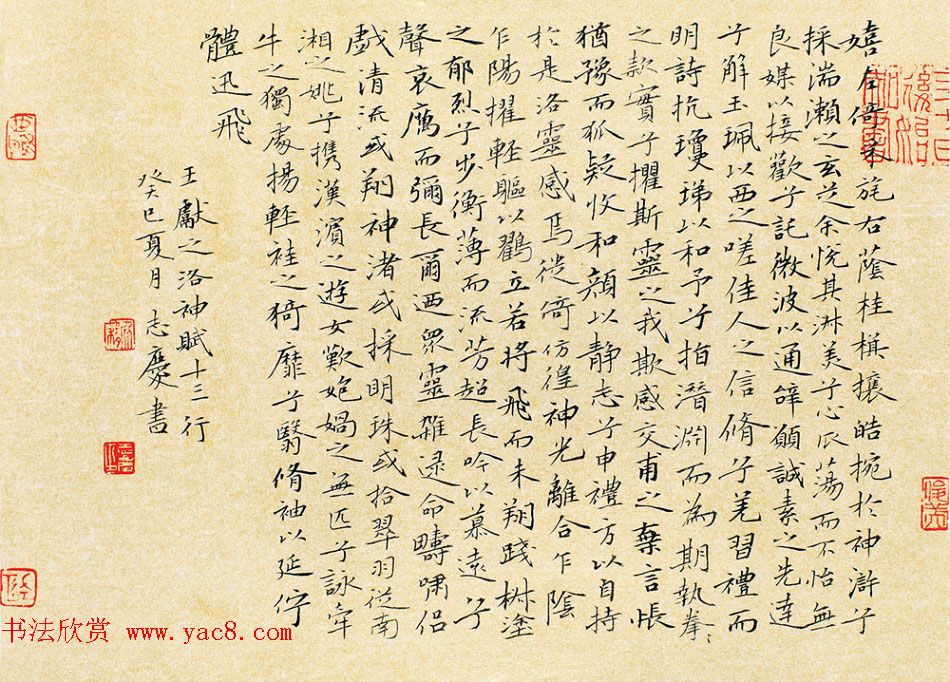 嬉左倚采旄右蔭桂棋攘皓捥於神滸兮
採湍瀨之玄芝余悅其淋美兮心蕩而不怡無
良媒以接歡兮託微波以通辭願誠素之先達
兮解玉珮以西之嗟佳人之信脩兮羌習禮而
明詩抗瓊珶以和予兮指潛淵而為期執拳、
之款實兮懼斯靈之我欺感交甫之棄言悵
猶豫而狐疑收和顏以静志兮申禮方以自持
於是洛靈感焉徙倚仿徨神光離合乍陰
乍陽擢輕軀以鸖立若將飛而未翔踐椒塗
之郁烈兮步衡薄而流芳超長吟以慕遠兮
聲哀厲而彌長爾迺眾靈雜遝命疇嘯侶
戲清流或翔神渚或採明珠或拾翠羽從南
湘之姚兮携漢濱之遊女歎匏媧之無匹兮詠牽
牛之獨處揚輕袿之猗靡兮翳脩袖以延佇
體迅飛
王獻之洛神賦十三行
癸巳夏月志慶書
书法欣赏 www.yac8.com